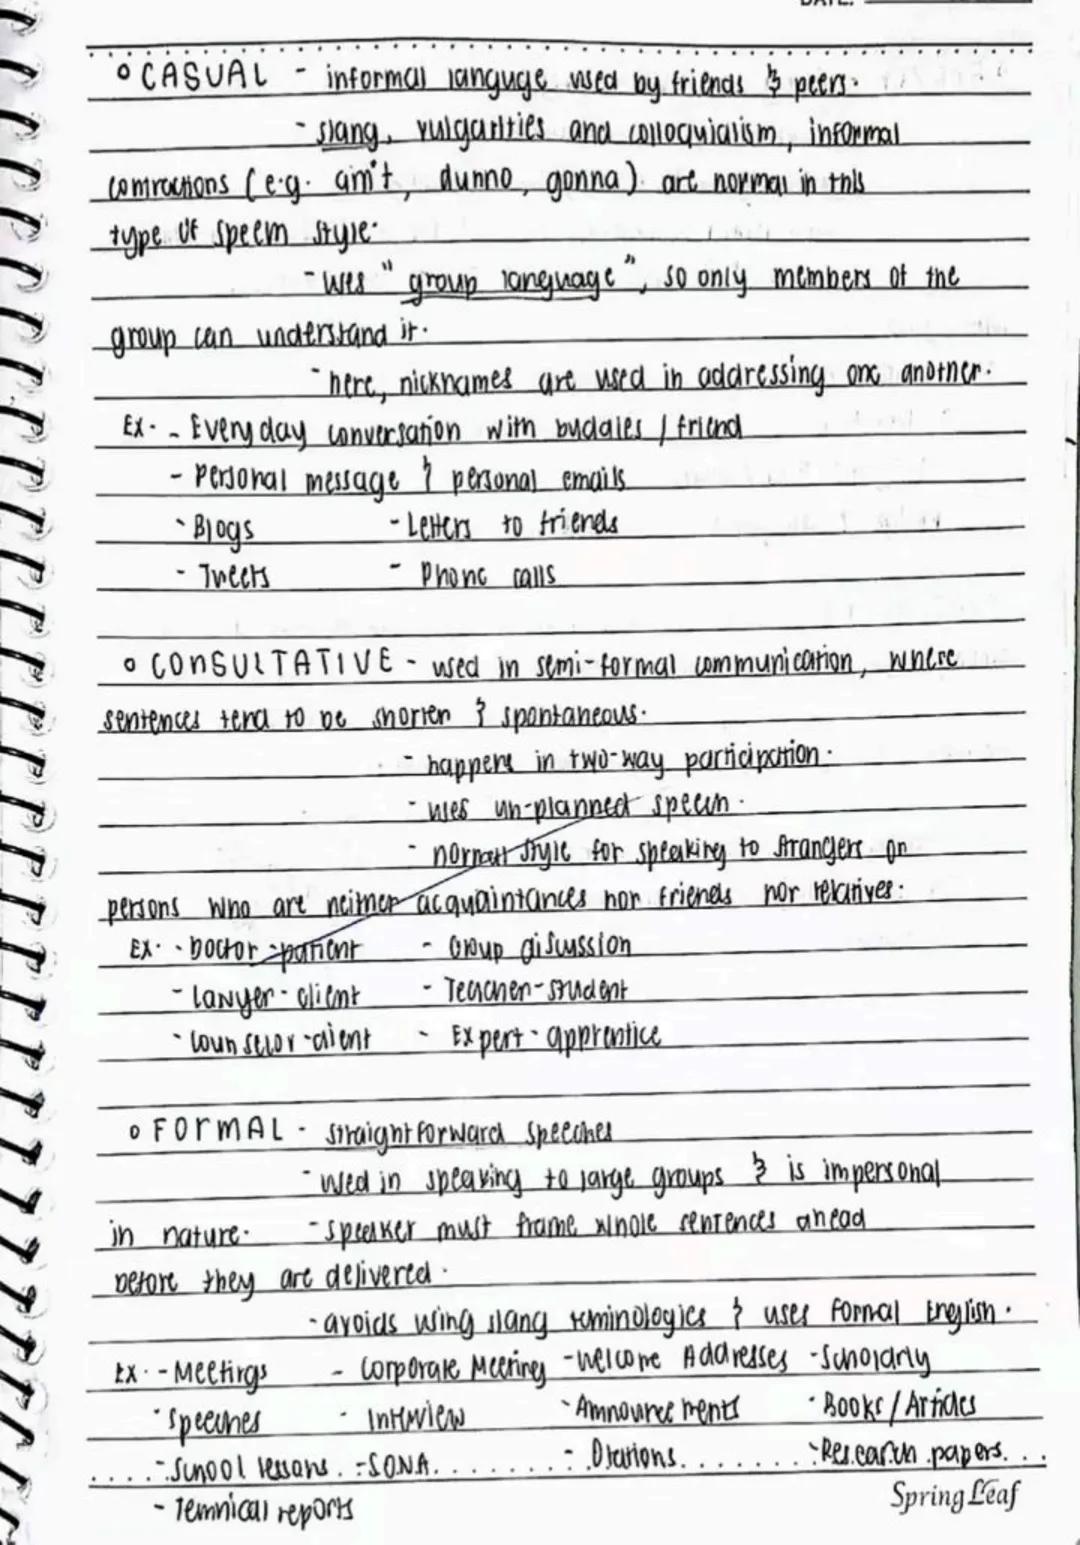 DATE:
° CASUAL - informal languge used by friends & peers.
- slang, vulgarities and colloquialism, informal
contractions (e.g. ain't, dunno, gonna). are normal in this
type of speech style.
- uses "group language", so only members of the
group can understand it.
- here, nicknames are used in addressing one another.
Ex. - Everyday conversation with buddies / friend
- Personal message & personal emails
- Blogs - Letters to friends
- Tweets - Phone calls
° CONSULTATIVE - used in semi-formal communication, where
sentences tend to be shorten & spontaneous.
- happens in two-way participation.
- uses un-planned speech.
- normal style for speaking to strangers or
persons who are neither acquaintances nor friends nor relatives.
Ex. - Doctor - patient - Group discussion
- Lawyer - client - Teacher-student
- Counselor - client - Expert - apprentice
° FORMAL - straightforward speeches
- used in speaking to large groups & is impersonal
in nature. - speaker must frame whole sentences ahead
before they are delivered.
- avoids using slang terminologies & uses formal English.
Ex. - Meetings - Corporate Meeting - Welcome Addresses - Scholarly
- Speeches - Interview - Announcements - Books / Articles
- School lessons - SONA - Orations - Research papers
- Technical reports
Spring Leaf